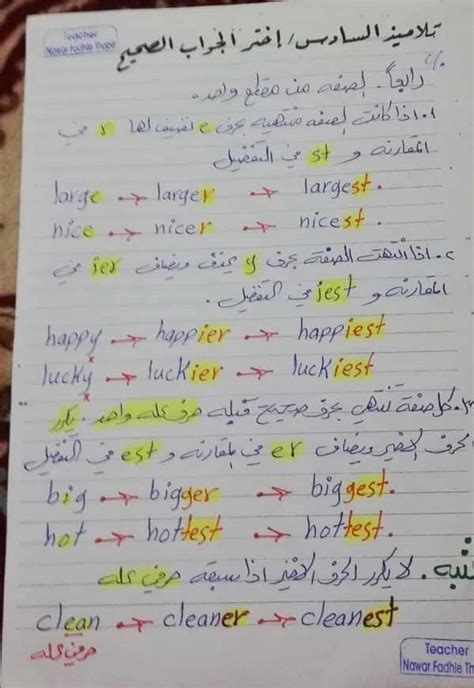 Teacher
Nawar Fadhle Thana
تلاميذ السادس / إختر الجواب الصحيح
رابعاً. الصفه من مقطع واحد.
١. اذا كانت الصفه منتهيه بحرف e نضيف لها r في
المقارنه و st في التفضيل
large → larger → largest.
nice → nicer → nicest.
٢. اذا انتهت الصفة بحرف y يحذف ويضاف ier في
المقارنه و iest في التفضيل.
happy → happier → happiest
lucky → luckier → luckiest
٣. كل صفة تنتهي بحرف صحيح قبله حرف عله واحد. يكرر
الحرف الاخير ويضاف er في المقارنه و est في التفضيل
big → bigger → biggest.
hot → hottest → hottest.
تنبه. لا يكرر الحرف الاخير اذا سبقه حرفي عله
clean → cleaner → cleanest
حرفي عله
Teacher
Nawar Fadhle Th